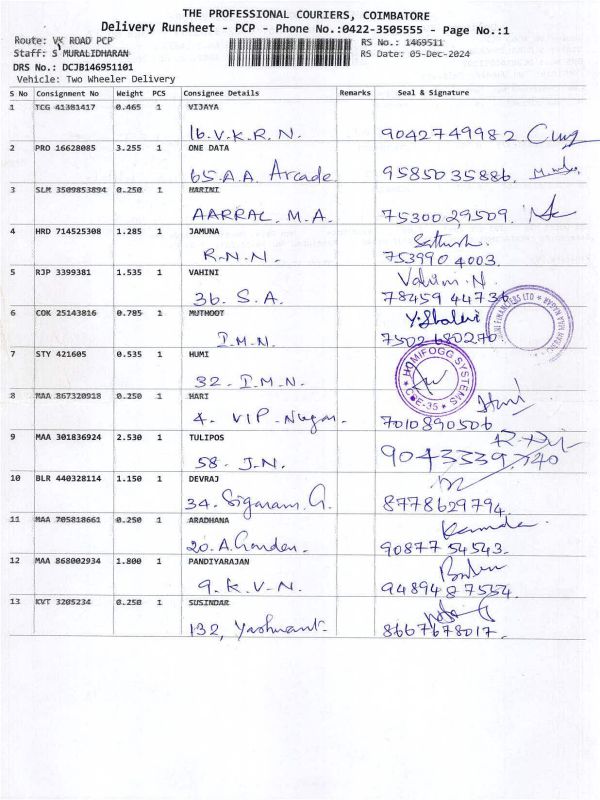 THE PROFESSIONAL COURIERS, COIMBATORE
Delivery Runsheet - PCP - Phone No.:0422-3505555 - Page No.:1
Route: VK ROAD PCP
RS No.: 1469511
Staff: S MURALIDHARAN
RS Date: 05-Dec-2024
DRS No.: DCJB146951101
Vehicle: Two Wheeler Delivery
S No Consignment No Weight PCS Consignee Details Remarks Seal & Signature
1 TCG 41381417 0.465 1 VIJAYA
16. V.K.R.N. 9042749982
2 PRO 16628085 3.255 1 ONE DATA
65. A.A. Arcade 9585035886.
3 SLM 3509853894 0.250 1 HARINI
AARRAC M.A. 7530029509.
4 HRD 714525308 1.285 1 JAMUNA
Sathish.
R.N.N. 753990 4003.
5 RJP 3399381 1.535 1 VAHINI
Vahini.N.
36. S.A. 78459 44736
6 COK 25143816 0.785 1 MUTHOOT
Y. Shalini
I.M.N. 7502680270
7 STY 421605 0.535 1 HUMI
HOMIFOGG SYSTEMS
32. I.M.N. CBE-35
8 MAA 867320918 0.250 1 HARI
4. VIP Nagar. 7010890506
9 MAA 301836924 2.530 1 TULIPOS
58. J.N. 9043339740
10 BLR 440328114 1.150 1 DEVRAJ
34. Sigaram G. 8778629794.
11 MAA 705818661 0.250 1 ARADHANA
20. A. Garden. 90877 54543.
12 MAA 868002934 1.800 1 PANDIYARAJAN
9. K.V.N. 9489487554.
13 KVT 3205234 0.250 1 SUSINDAR
132, Yashwant. 8667678017.